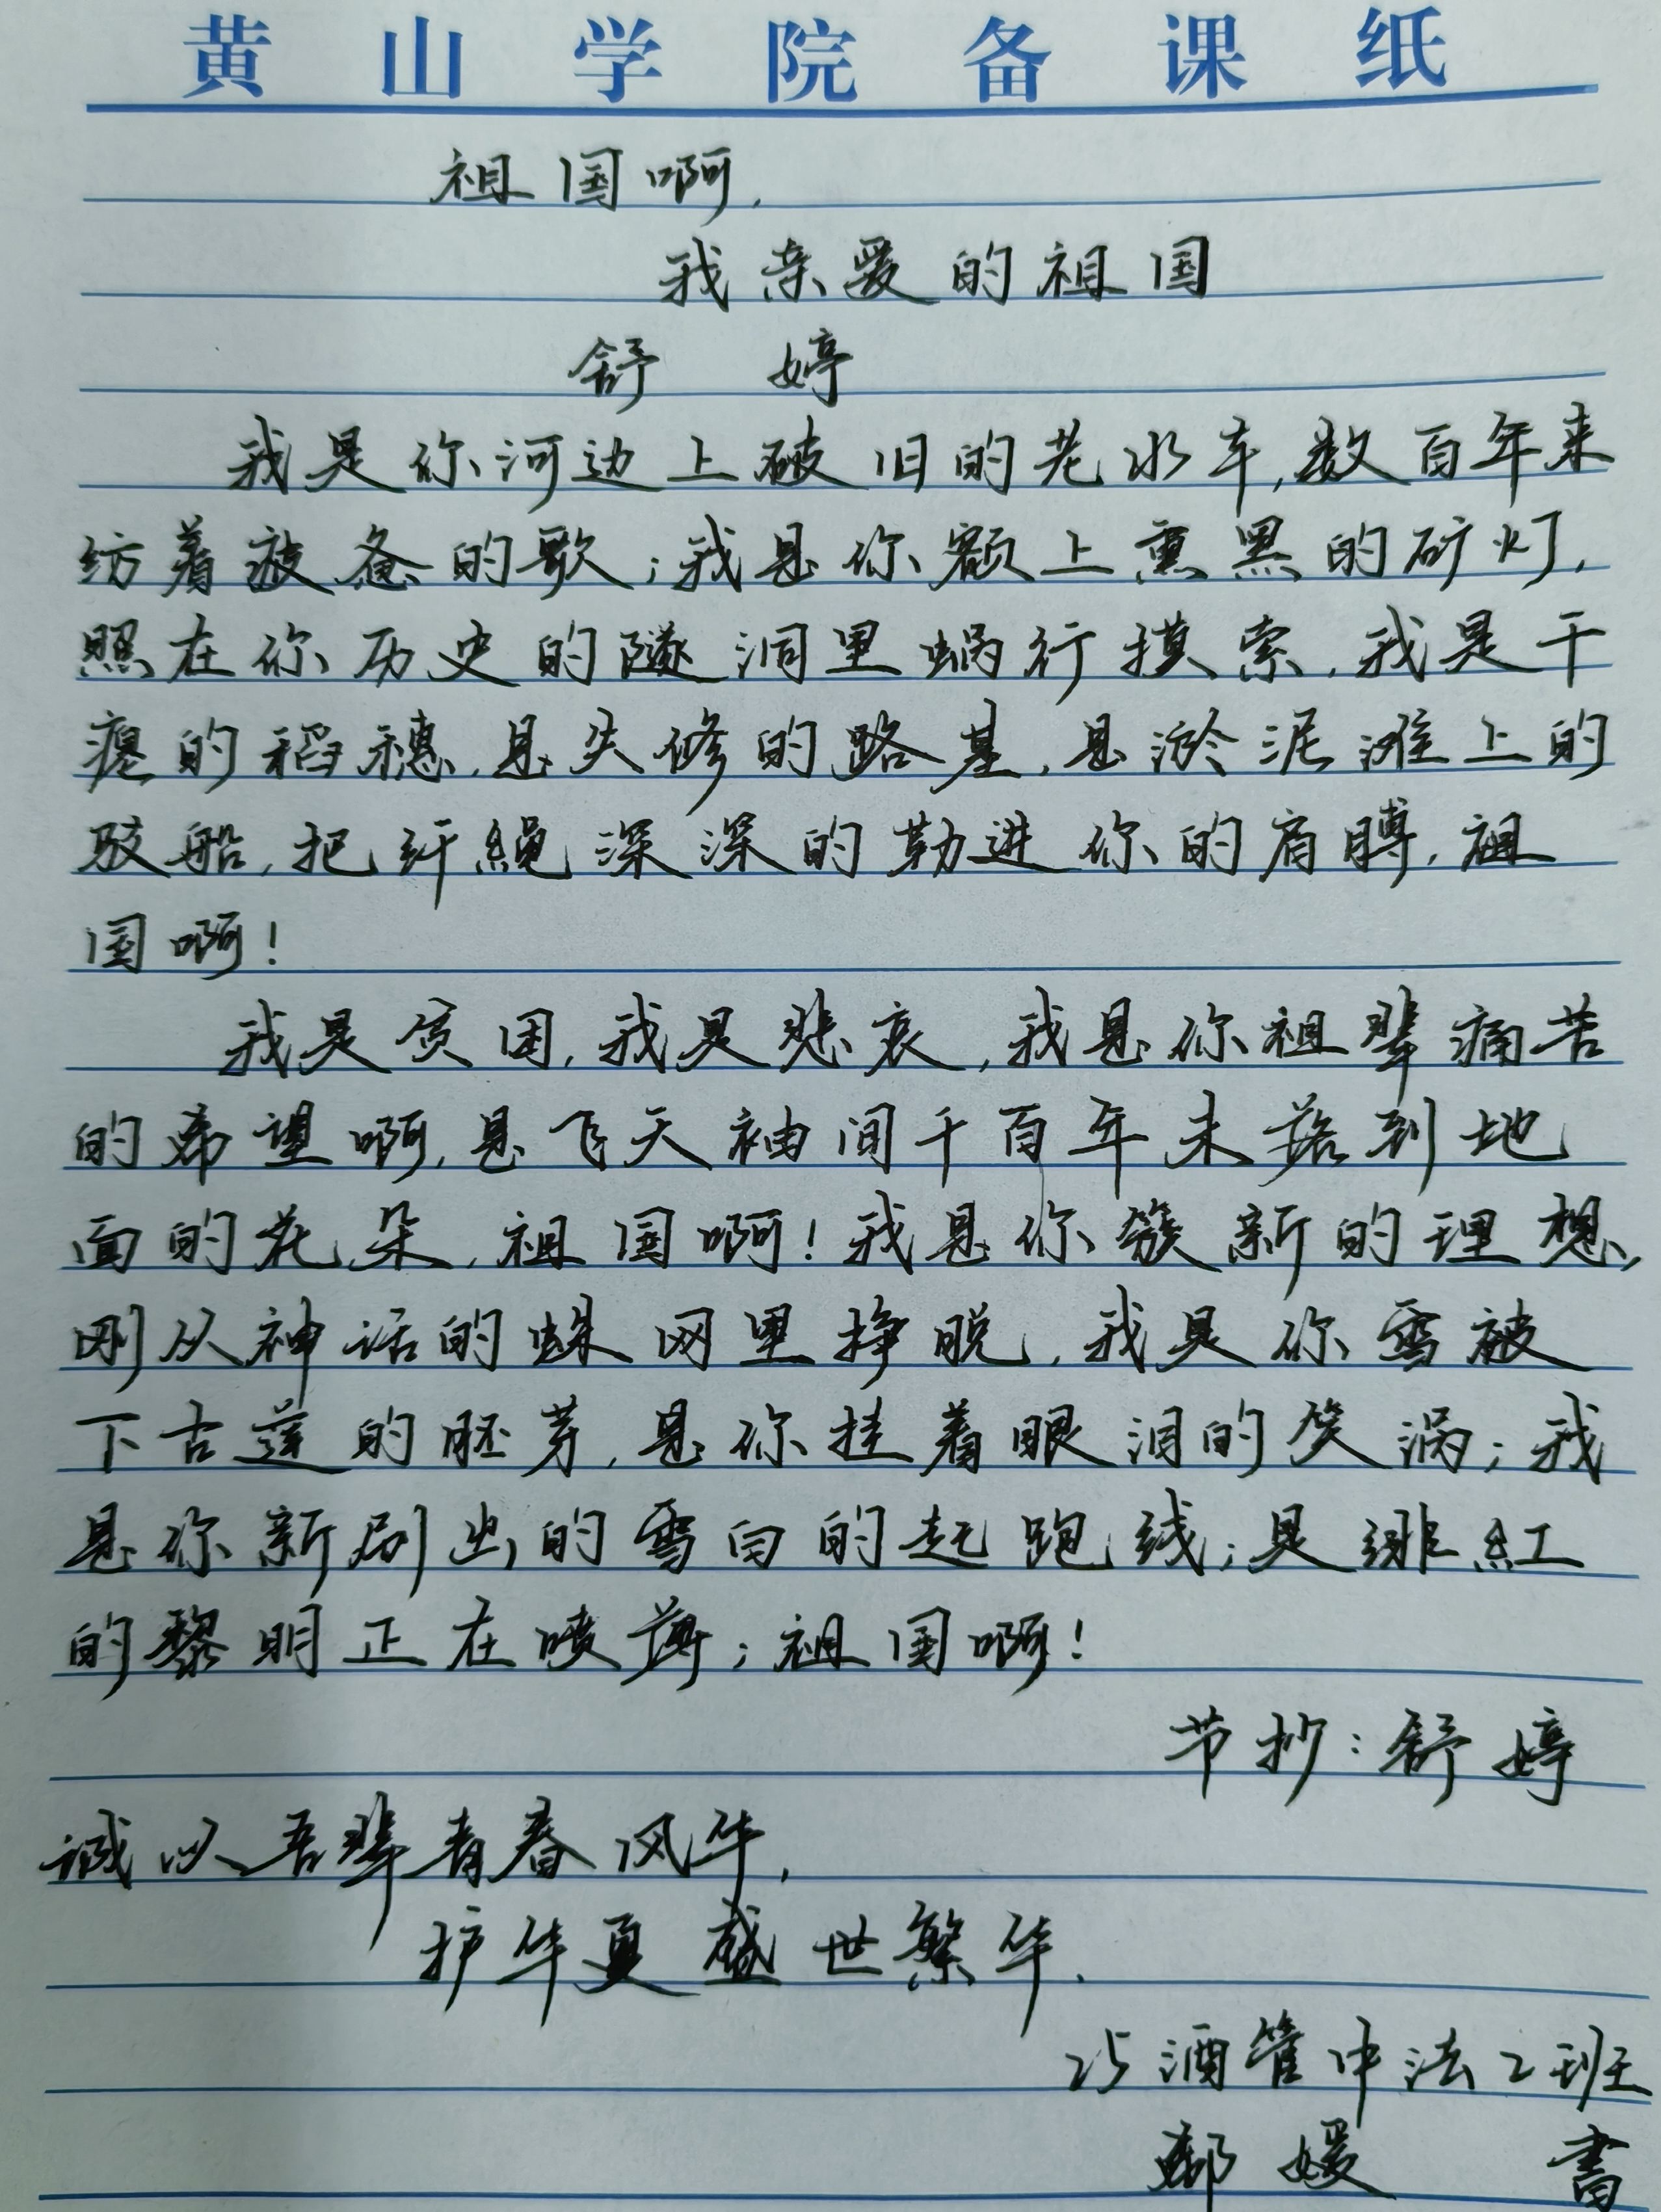 黄山学院备课纸
祖国啊,
我亲爱的祖国
舒 婷
我是你河边上破旧的老水车,数百年来
纺着疲惫的歌;我是你额上熏黑的矿灯,
照在你历史的隧洞里蜗行摸索,我是干
瘪的稻穗,是失修的路基,是淤泥滩上的
驳船,把纤绳深深的勒进你的肩膊,祖
国啊!
我是贫困,我是悲哀,我是你祖辈痛苦
的希望啊,是飞天袖间千百年未落到地
面的花朵,祖国啊!我是你簇新的理想,
刚从神话的蛛网里挣脱,我是你雪被
下古莲的胚芽,是你挂着眼泪的笑涡;我
是你新刷出的雪白的起跑线;是绯红
的黎明正在喷薄;祖国啊!
节抄:舒婷
诚以吾辈青春风华,
护华夏盛世繁华.
25酒管中法2班
媛 書